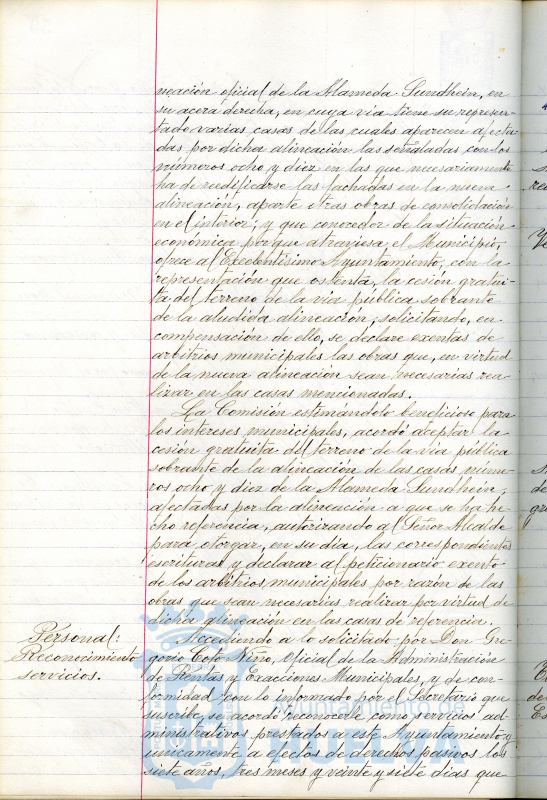 neación oficial de la Alameda Sundhein, en
su acera derecha, en cuya vía tiene su represen-
tado varias casas de las cuales aparecen afecta-
das por dicha alineación las señaladas con los
números ocho y diez en las que necesariamente
ha de reedificarse las fachadas en la nueva
alineación, aparte otras obras de consolidación
en el interior; y que conocedor de la situación
económica por que atraviesa el Municipio,
ofrece al Excelentísimo Ayuntamiento, con la
representación que ostenta, la cesión gratui-
ta del terreno de la vía pública sobrante
de la aludida alineación, solicitando, en
compensación de ello, se declare exentas de
arbitrios municipales las obras que, en virtud
de la nueva alineación sean necesarias rea-
lizar en las casas mencionadas.
La Comisión estimándolo beneficioso para
los intereses municipales, acordó aceptar la
cesión gratuita del terreno de la vía pública
sobrante de la alineación de las casas núme-
ros ocho y diez de la Alameda Sundhein,
afectadas por la alineación a que se ha he-
cho referencia, autorizando al Señor Alcalde
para otorgar, en su día, las correspondientes
escrituras y declarar al peticionario exento
de los arbitrios municipales por razón de las
obras que sean necesarias realizar por virtud de
dicha alineación en las casas de referencia.
Personal:
Reconocimiento
servicios.
Accediendo a lo solicitado por Don Gre-
gorio Coto Niño, Oficial de la Administración
de Rentas y Exacciones Municipales, y de con-
formidad con lo informado por el Secretario que
suscribe, se acordó reconocerle como servicios ad-
ministrativos prestados a este Ayuntamiento y
únicamente a efectos de derechos pasivos los
siete años, tres meses y veinte y siete días que
Ayuntamiento de
HUELVA